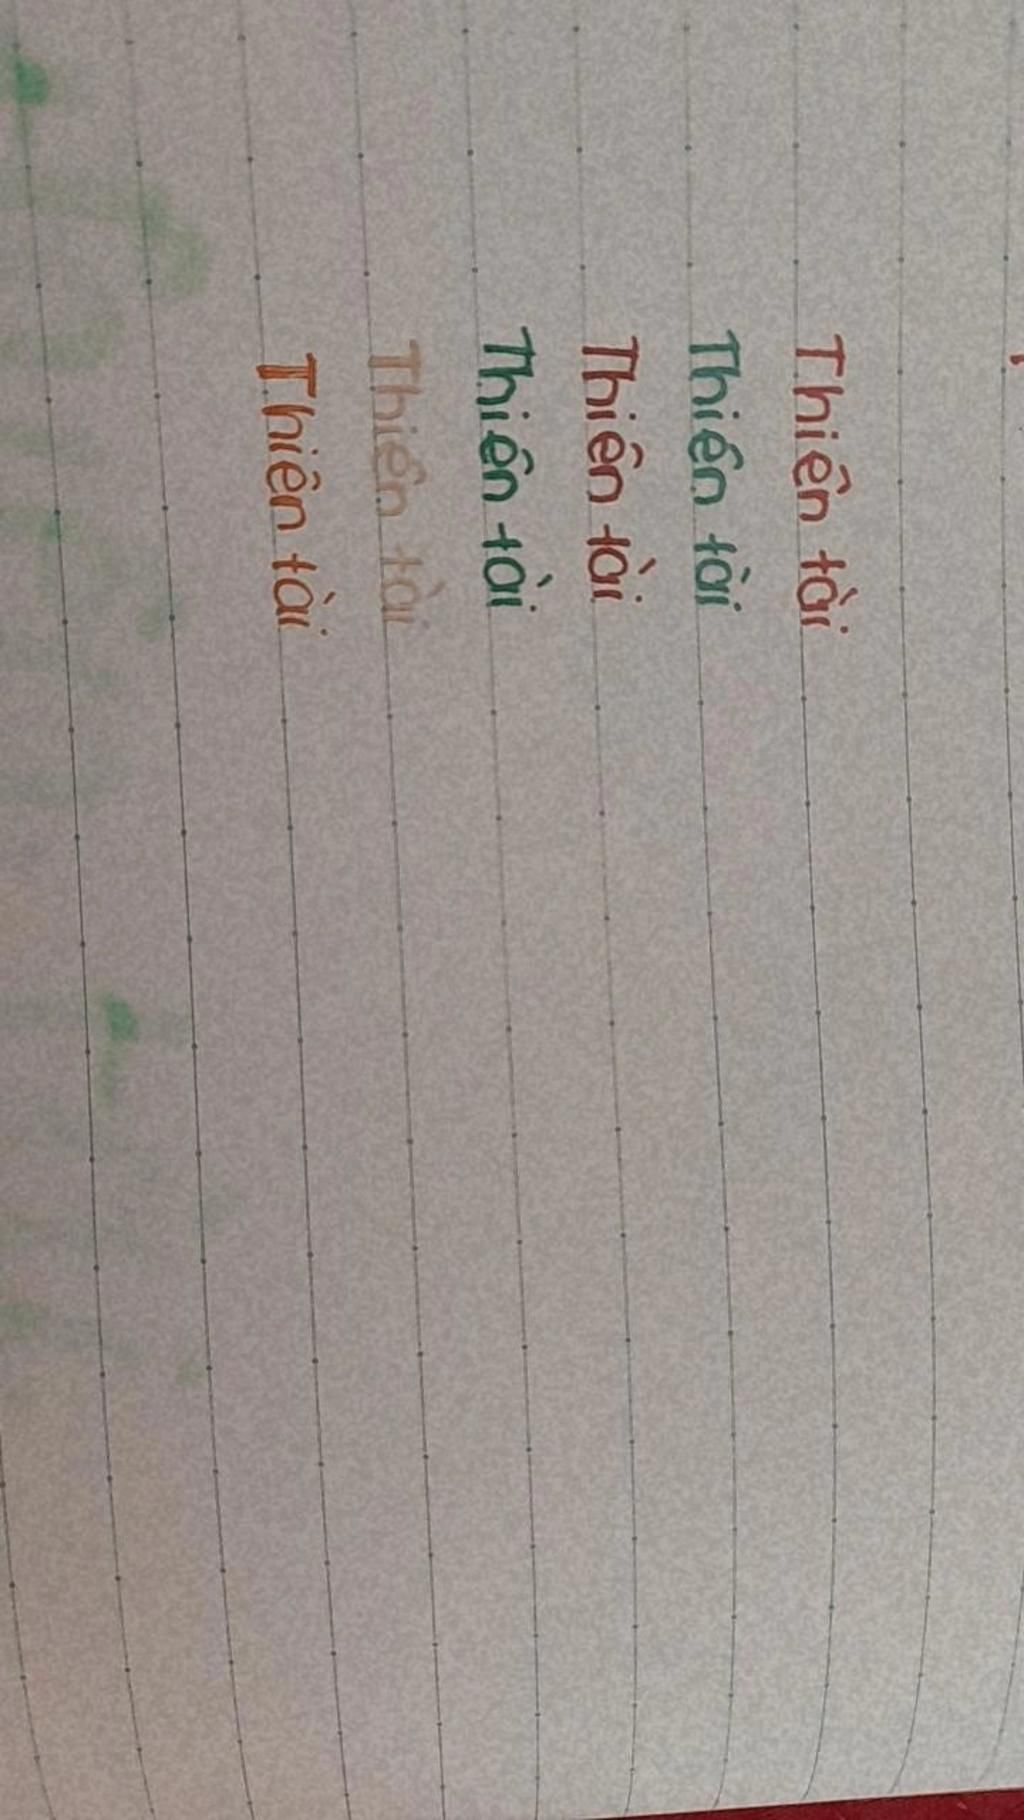 Thiên tài
Thiên tài
Thiên tài
Thiên tài
Thiên tài
Thiên tài